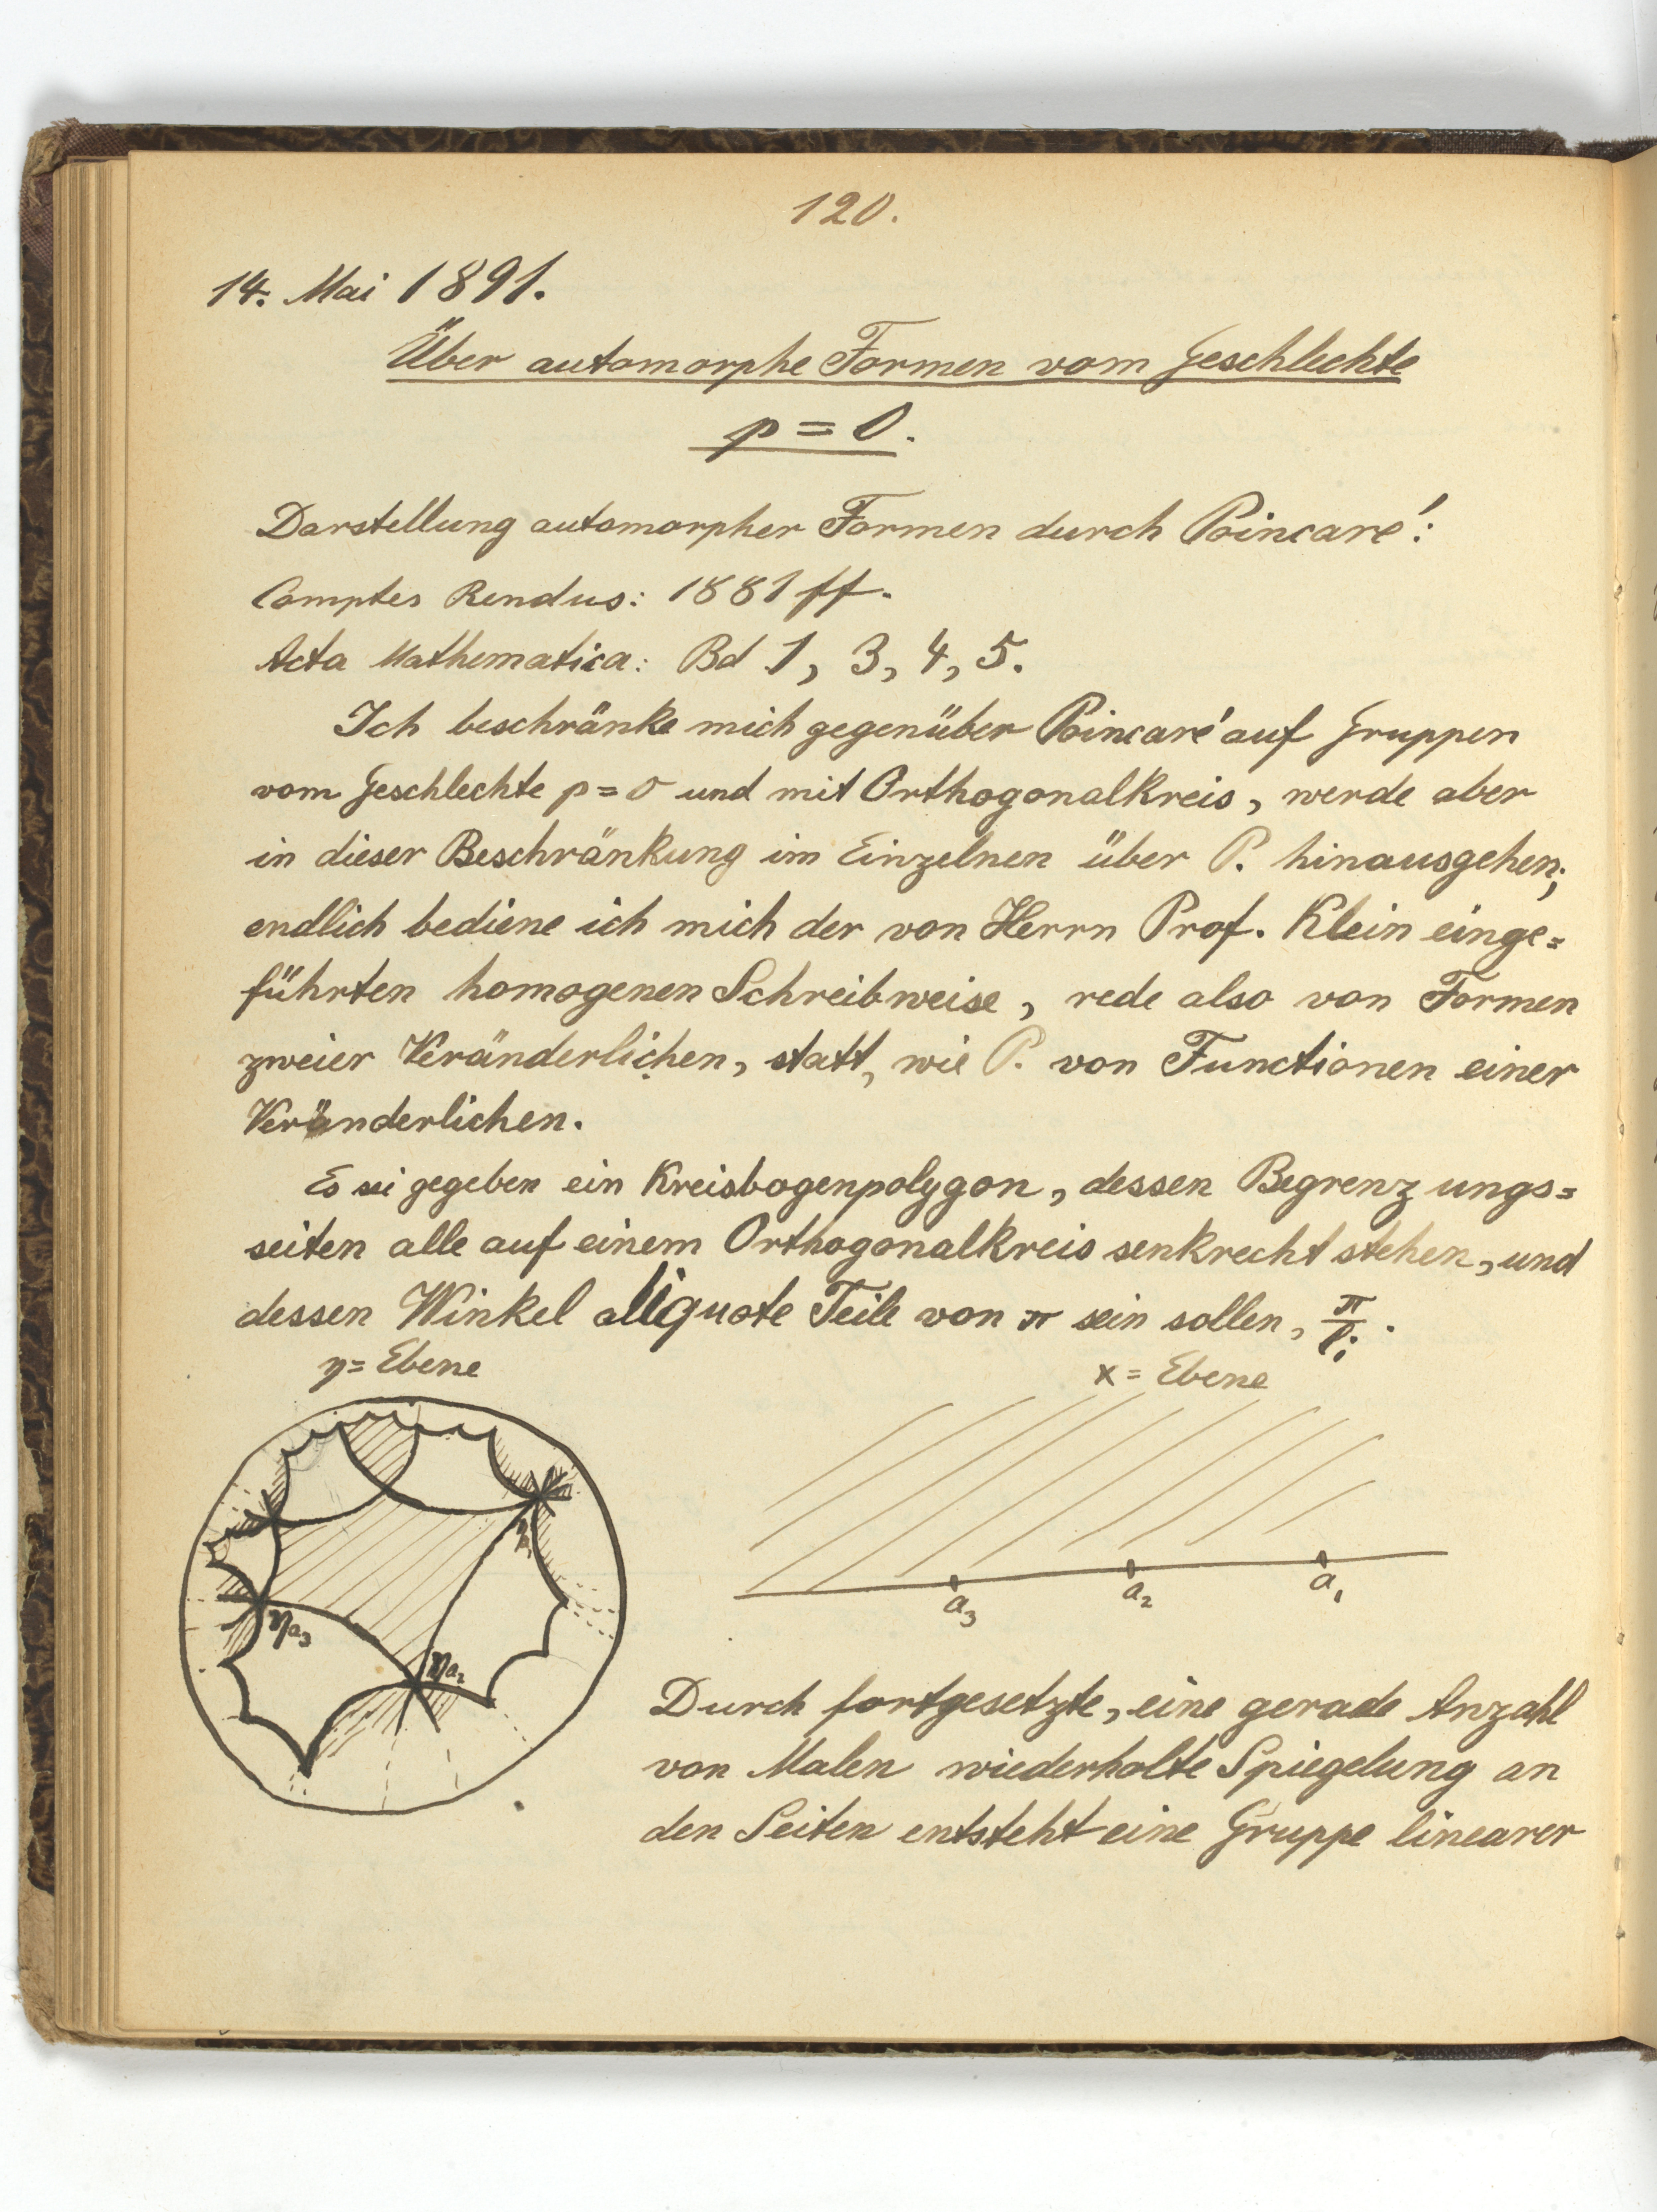 120.
14. Mai 1891.
Über automorphe Formen vom Geschlechte
p = 0.
Darstellung automorpher Formen durch Poincaré:
Comptes Rendus: 1881 ff.
Acta Mathematica: Bd 1, 3, 4, 5.
Ich beschränke mich gegenüber Poincaré auf Gruppen
vom Geschlechte p = 0 und mit Orthogonalkreis, werde aber
in dieser Beschränkung im Einzelnen über P. hinausgehen;
endlich bediene ich mich der von Herrn Prof. Klein einge=
führten homogenen Schreibweise, rede also von Formen
zweier Veränderlichen, statt, wie P. von Functionen einer
Veränderlichen.
Es sei gegeben ein Kreisbogenpolygon, dessen Begrenzungs=
seiten alle auf einem Orthogonalkreis senkrecht stehen, und
dessen Winkel aliquote Teile von π sein sollen, π/lᵢ.
η = Ebene
x = Ebene
ηa₃
ηa₂
a₃
a₂
a₁
Durch fortgesetzte, eine gerade Anzahl
von Malen wiederholte Spiegelung an
den Seiten entsteht eine Gruppe linearer